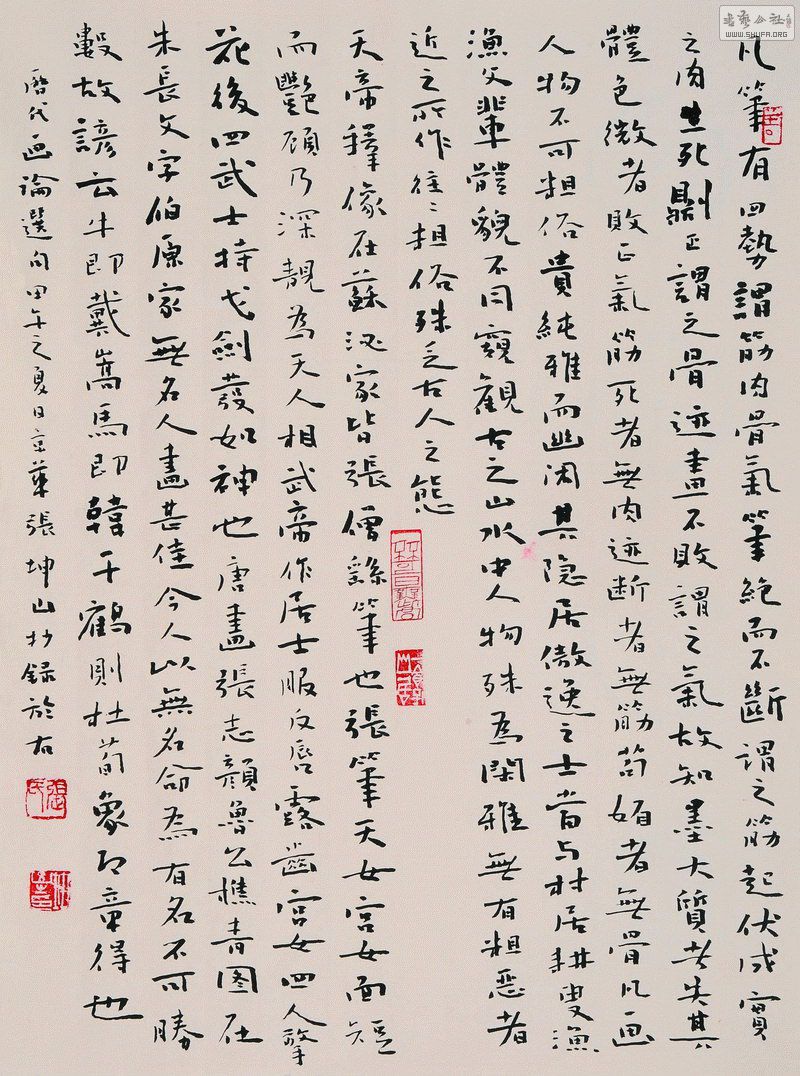 凡筆有四勢謂筋肉骨氣筆絕而不斷謂之筋起伏成實
之肉生死剛正謂之骨迹畫不敗謂之氣故知墨大質者失其
體色微者敗正氣筋死者無肉迹断者無筋苟媚者無骨凡画
人物不可粗俗貴純雅而幽闲其隐居傲逸之士當与村居耕叟漁
漁父輩體貌不同竊觀古之山水中人物殊為閑雅無有粗惡者
近之所作往〻粗俗殊乏古人之態
天帝釋像在蘇泌家皆張僧繇筆也張筆天女宮女面短
而艷顔乃深靚為天人相武帝作居士服反唇露齒宮女四人擎
花後四武士持戈劍發如神也唐畫張志顏魯公樵青图在
朱長文字伯原家無名人畫甚佳今人以無名命為有名不可勝
數故諺云牛即戴嵩馬即韓干鶴則杜荀象即章得也
歷代画論選句甲午之夏日京華張坤山抄録於右
書藝公社
WWW.SHUFA.ORG